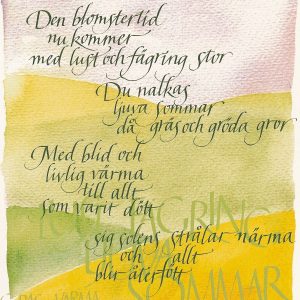 Den blomstertid
nu kommer
med lust och fägring stor
Du nalkas
ljuva sommar
då gräs och gröda gror
Med blid och
livlig värma
till allt
som varit dött
sig solens strålar närma
och allt
blir återfött
FÄGRING
VÄRMA
SOMMAR